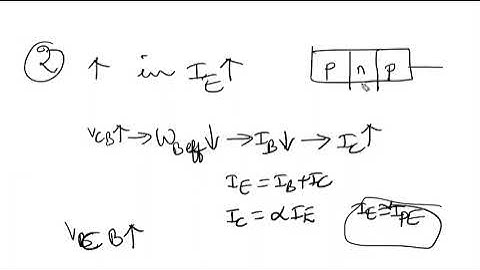 ② ↑ in I_E ↑
p n p
V_CB ↑ → W_Beff ↓ → I_B ↓ → I_C ↑
I_E = I_B + I_C
I_C = α I_E
I_E ≅ I_PE
B ↑